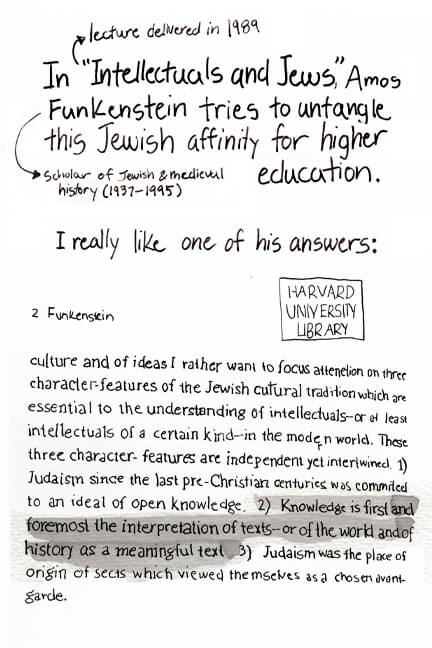 lecture delivered in 1989
In "Intellectuals and Jews," Amos
Funkenstein tries to untangle
this Jewish affinity for higher
education.
Scholar of Jewish & medieval
history (1937-1995)
I really like one of his answers:
HARVARD
UNIVERSITY
LIBRARY
2 Funkenstein
culture and of ideas I rather want to focus attenetion on three
character-features of the Jewish cutural tradition which are
essential to the understanding of intellectuals--or at least
intellectuals of a certain kind--in the modern world. These
three character- features are independent yet intertwined. 1)
Judaism since the last pre-Christian centuries was commited
to an ideal of open knowledge. 2) Knowledge is first and
foremost the interpretation of texts--or of the world and of
history as a meaningful text 3) Judaism was the place of
origin of sects which viewed themselves as a chosen avant-
garde.